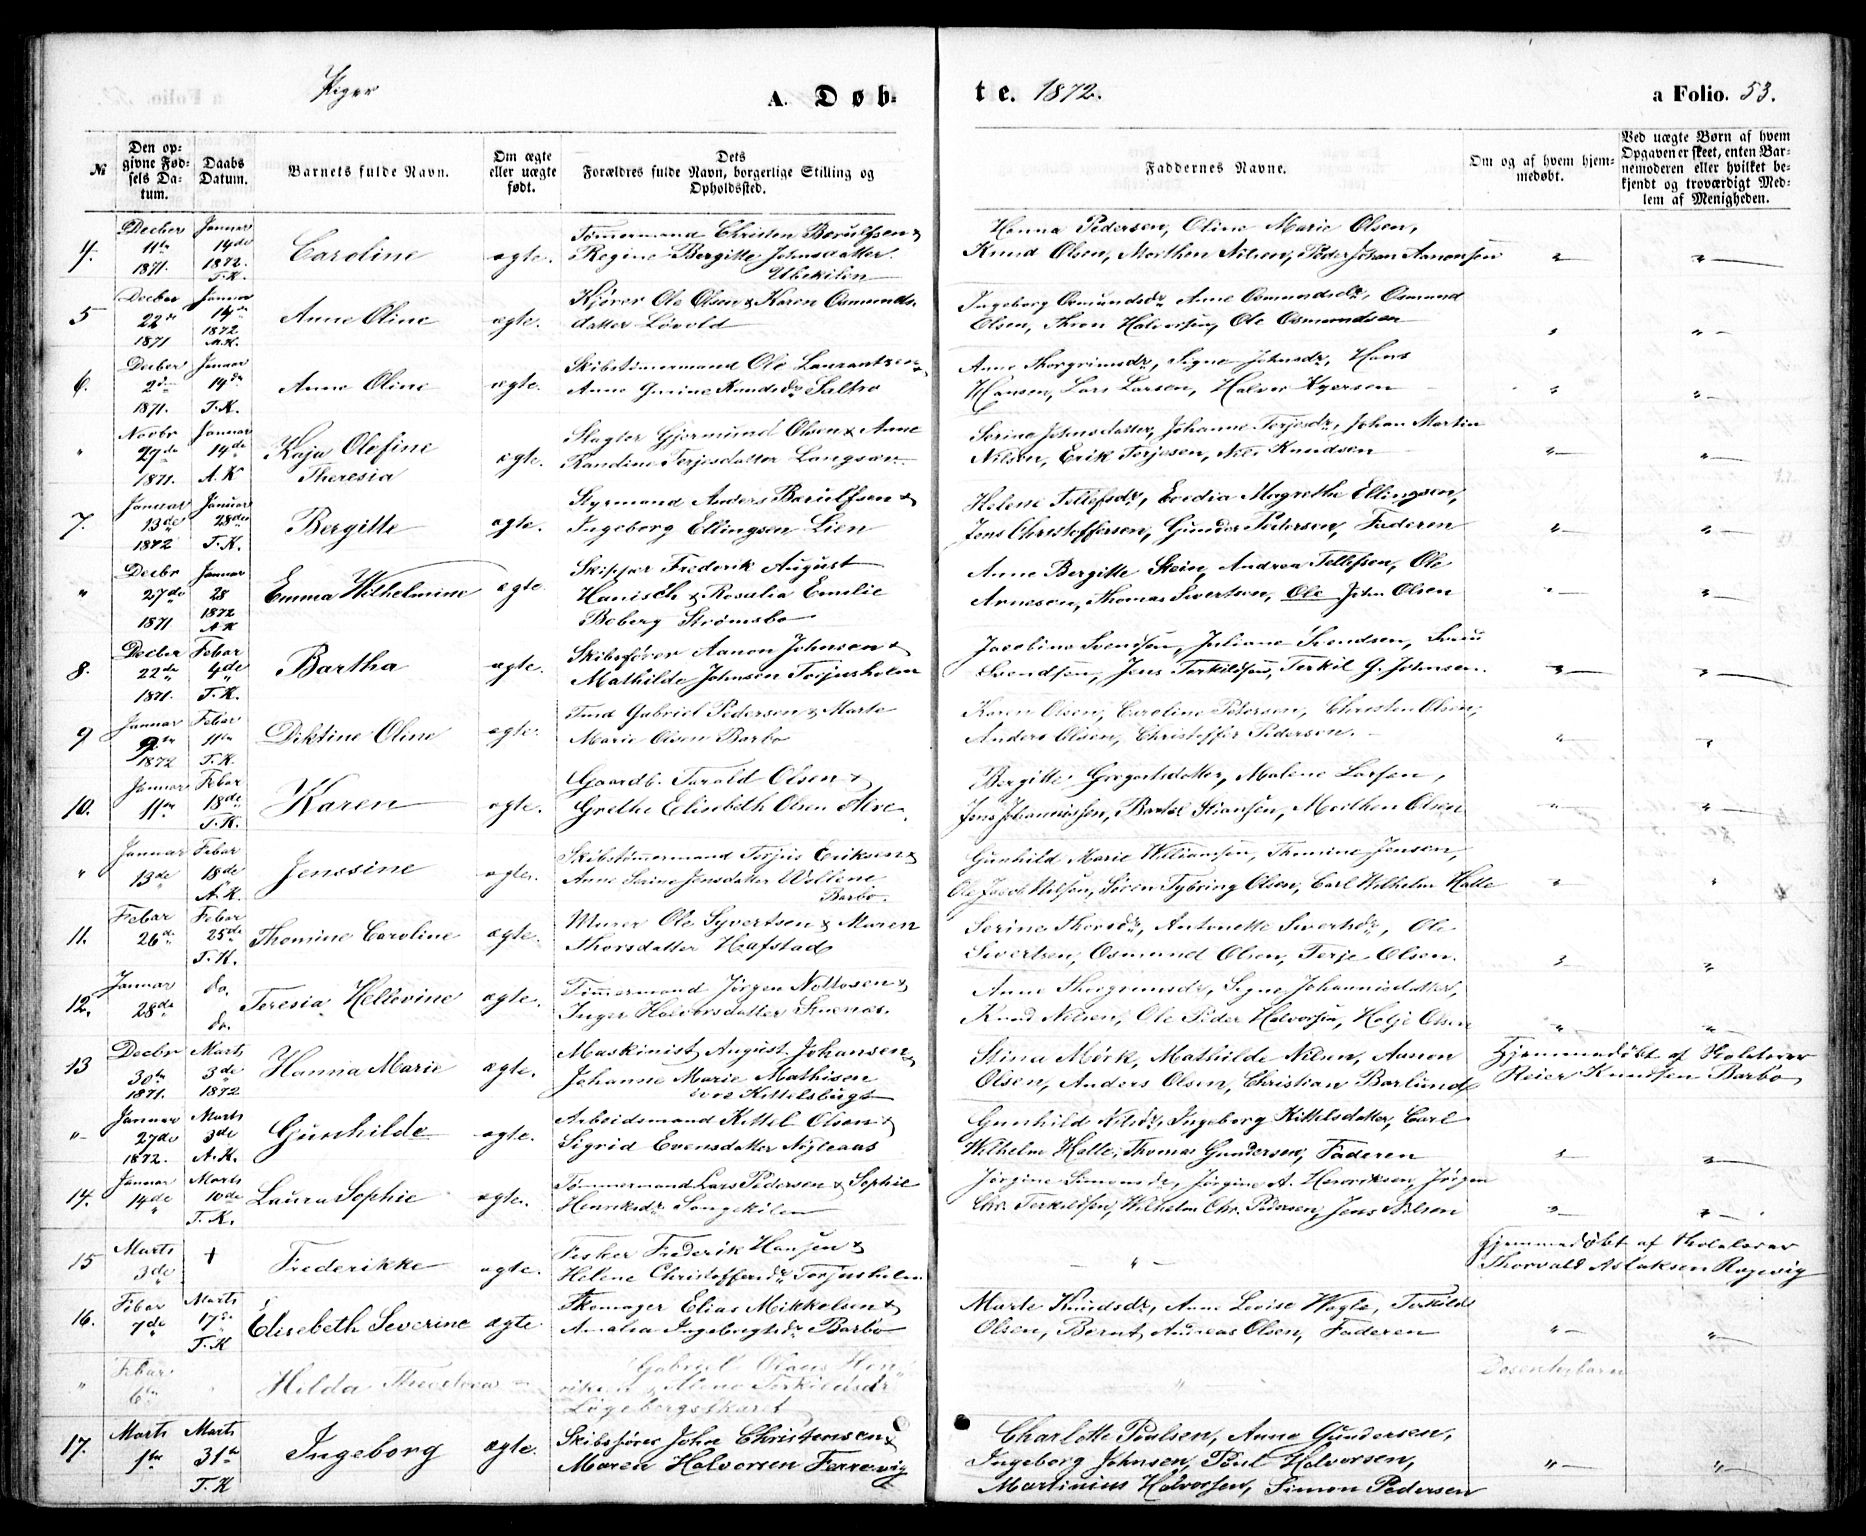 Piger
A. Døb-
te. 1872.
a Folio. 53.
№
Den op-
givne Fød-
sels Da-
tum.
Daabs
Datum.
Barnets fulde Navn.
Om ægte
eller uægte
født.
Dets
Forældres fulde Navn, borgerlige Stilling og
Opholdssted.
Faddernes Navne.
Om og af hvem hjem-
medøbt.
Ved uægte Børn af hvem
Opgaven er skeet, enten Bar-
nemoderen eller hvilket be-
kjendt og troværdigt Med-
lem af Menigheden.
4.
Decber 11te 1871.
Januar 14de 1872. T.K.
Caroline
ægte.
Tømmermand Christen Berulfsen &
Regine Bergitte Johnsdatter
Ubekilen
Hanna Pedersen, Oline Marie Olsen,
Knud Olsen, Morthen Nilsen, Peder Johan Aanonsen
5
Decber 22de 1871
Januar 14de 1872 A.K.
Anne Oline
ægte.
Kjører Ole Olsen & Karen Osmunds-
datter Løvold
Ingeborg Osmundsdr, Anne Osmundsdr, Osmund
Olsen, Thron Halvorsen, Ole Osmundsen
6.
Decber 2den 1871.
Januar 14de T.K.
Anne Oline
ægte.
Skibstømmermand Ole Laurantzen &
Anne Gurine Knudsdr Saltrø
Anne Thorgrimsdr, Signe Johnsdr, Hans
Hansen, Lars Larsen, Halvor Agersen
"
Novbr 27de 1871.
Januar 14de A.K
Kaja Olefine
Theresia
ægte.
Slagter Gjermund Olsen & Anne
Randine Terjesdatter Langsæe
Serine Johnsdatter, Johanne Terjesdr, Johan Martin
Nilsen, Erik Terjesen, Nils Knudsen
7.
Januar 13de 1872
Januar 28de T.K.
Bergitte
ægte.
Styrmand Anders Barulfsen &
Ingeborg Ellingsen Lien
Helene Tellefsdr, Evedia Magrethe Ellingsen,
Jens Christoffersen, Gunder Pedersen, Faderen
"
Decbr 27de 1871
Januar 28 1872 A.K
Emma Wilhelmine
ægte.
Skipper Frederik August
Hanisch & Rosalia Emilie
Boberg Strømsbo
Anne Bergitte Stein, Andrea Tellefsen, Ole
Arnesen, Thomas Sivertsen, Ole John Olsen
8.
Decber 22de 1871.
Febar 4de T.K.
Bartha
ægte.
Skibsfører Aanon Johnsen &
Mathilde Johnsen Torjusholm
Jacobine Svendsen, Juliane Svendsen,
Svendsen, Jens Terkildsen, Terkil G. Johnsen.
9
Januar 9de 1872
Febar 11te T.K.
Diktine Oline
ægte.
Tmd Gabriel Pedersen & Marte
Marie Olsen Barbo
Karen Olsen, Caroline Petersen, Christen Olsen,
Anders Olsen, Christoffer Pedersen.
10.
Januar 11te
Febar 18de T.K.
Karen
ægte.
Gaardb. Tarald Olsen &
Grethe Elisebeth Olsen Alve.
Bergitte Gregertsdatter, Malene Larsen,
Jens Johannessen, Bartel Stiansen, Morthen Olsen
"
Januar 13de
Febar 18de A.K.
Jenssine
ægte.
Skibstømmermand Terjus Eriksen &
Anne Serine Jensdatter Wollene
Barbo.
Gunhild Marie Williamsen, Thomine Jensen,
Ole Jacob Nilsen, Søren Tybring Olsen, Carl Wilhelm Halle
11.
Febar 26de
Febar 25de T.K.
Thomine Caroline
ægte.
Murer Ole Syvertsen & Maren
Thorsdatter Hafstad
Serine Thorsdr, Antonette Siverthsdr, Ole
Sivertsen, Osmund Olsen, Terje Olsen.
12.
Januar 28de
do. do.
Teresia Hellevine
ægte.
Timmermand Jørgen Nottosen &
Inger Halvorsdatter Stuenæs.
Anne Thorgrimsdr, Signe Johannisdatter,
Knud Nilsen, Ole Peder Halvorsen, Halje Olsen
13
Decbr 30te 1871.
Marts 3de 1872
Hanna Marie
ægte.
Maskinist August Johansen &
Johanne Marie Mathisen
ved Kittelsbugt
Stina Mørk, Mathilde Nilsen, Aanon
Olsen, Anders Olsen, Christian Barlund
Hjemmedøbt af Skolelærer
Reier Knudsen Barbo
"
Januar 27de 1872.
Marts 3de A.K.
Gunhilde
ægte.
Arbeidsmand Kittel Olsen &
Sigrid Evensdatter Nygleaas
Gunhild Nilsdr, Ingeborg Kittelsdatter, Carl
Wilhelm Halle, Thomas Gundersen, Faderen
14.
Januar 14de
Marts 10de T.K.
Laura Sophie
ægte.
Tømmermand Lars Pedersen & Sophie
Henriksdr Songekilen
Jørgine Simonsdr, Jørgine A. Henriksen, Jørgen
Chr. Terkeldsen, Wilhelm Chr. Pedersen, Jens Nilsen
15
Marts 3de
+
Frederikke
ægte.
Fisker Frederik Hansen &
Helene Christoffersdr Torjusholm
Hjemmedøbt af Skolelærer
Thorvald Aslaksen Røgevig
16.
Febar 7de
Marts 17de T.K
Elisebeth Severine
ægte
Skomager Elias Mikkelsen &
Amalia Ingebregtsdr Barbo
Marte Knudsdr, Anne Lovise Wagle, Terkild
Olsen, Bernt Andreas Olsen, Faderen
"
Febar 6te
Hilda
Gabriel Olaus Hen-
riksen & Terkildsdr
Løgebergskaret
17.
Marts 1ste
Marts 31te T.K
Ingeborg
ægte.
Skibsfører John Christensen &
Maren Halvorsen Ferrevig
Charlotte Poulsen, Anne Gundersen,
Ingeborg Johnsen, Poul Halvorsen,
Martinius Halvorsen, Simon Pedersen